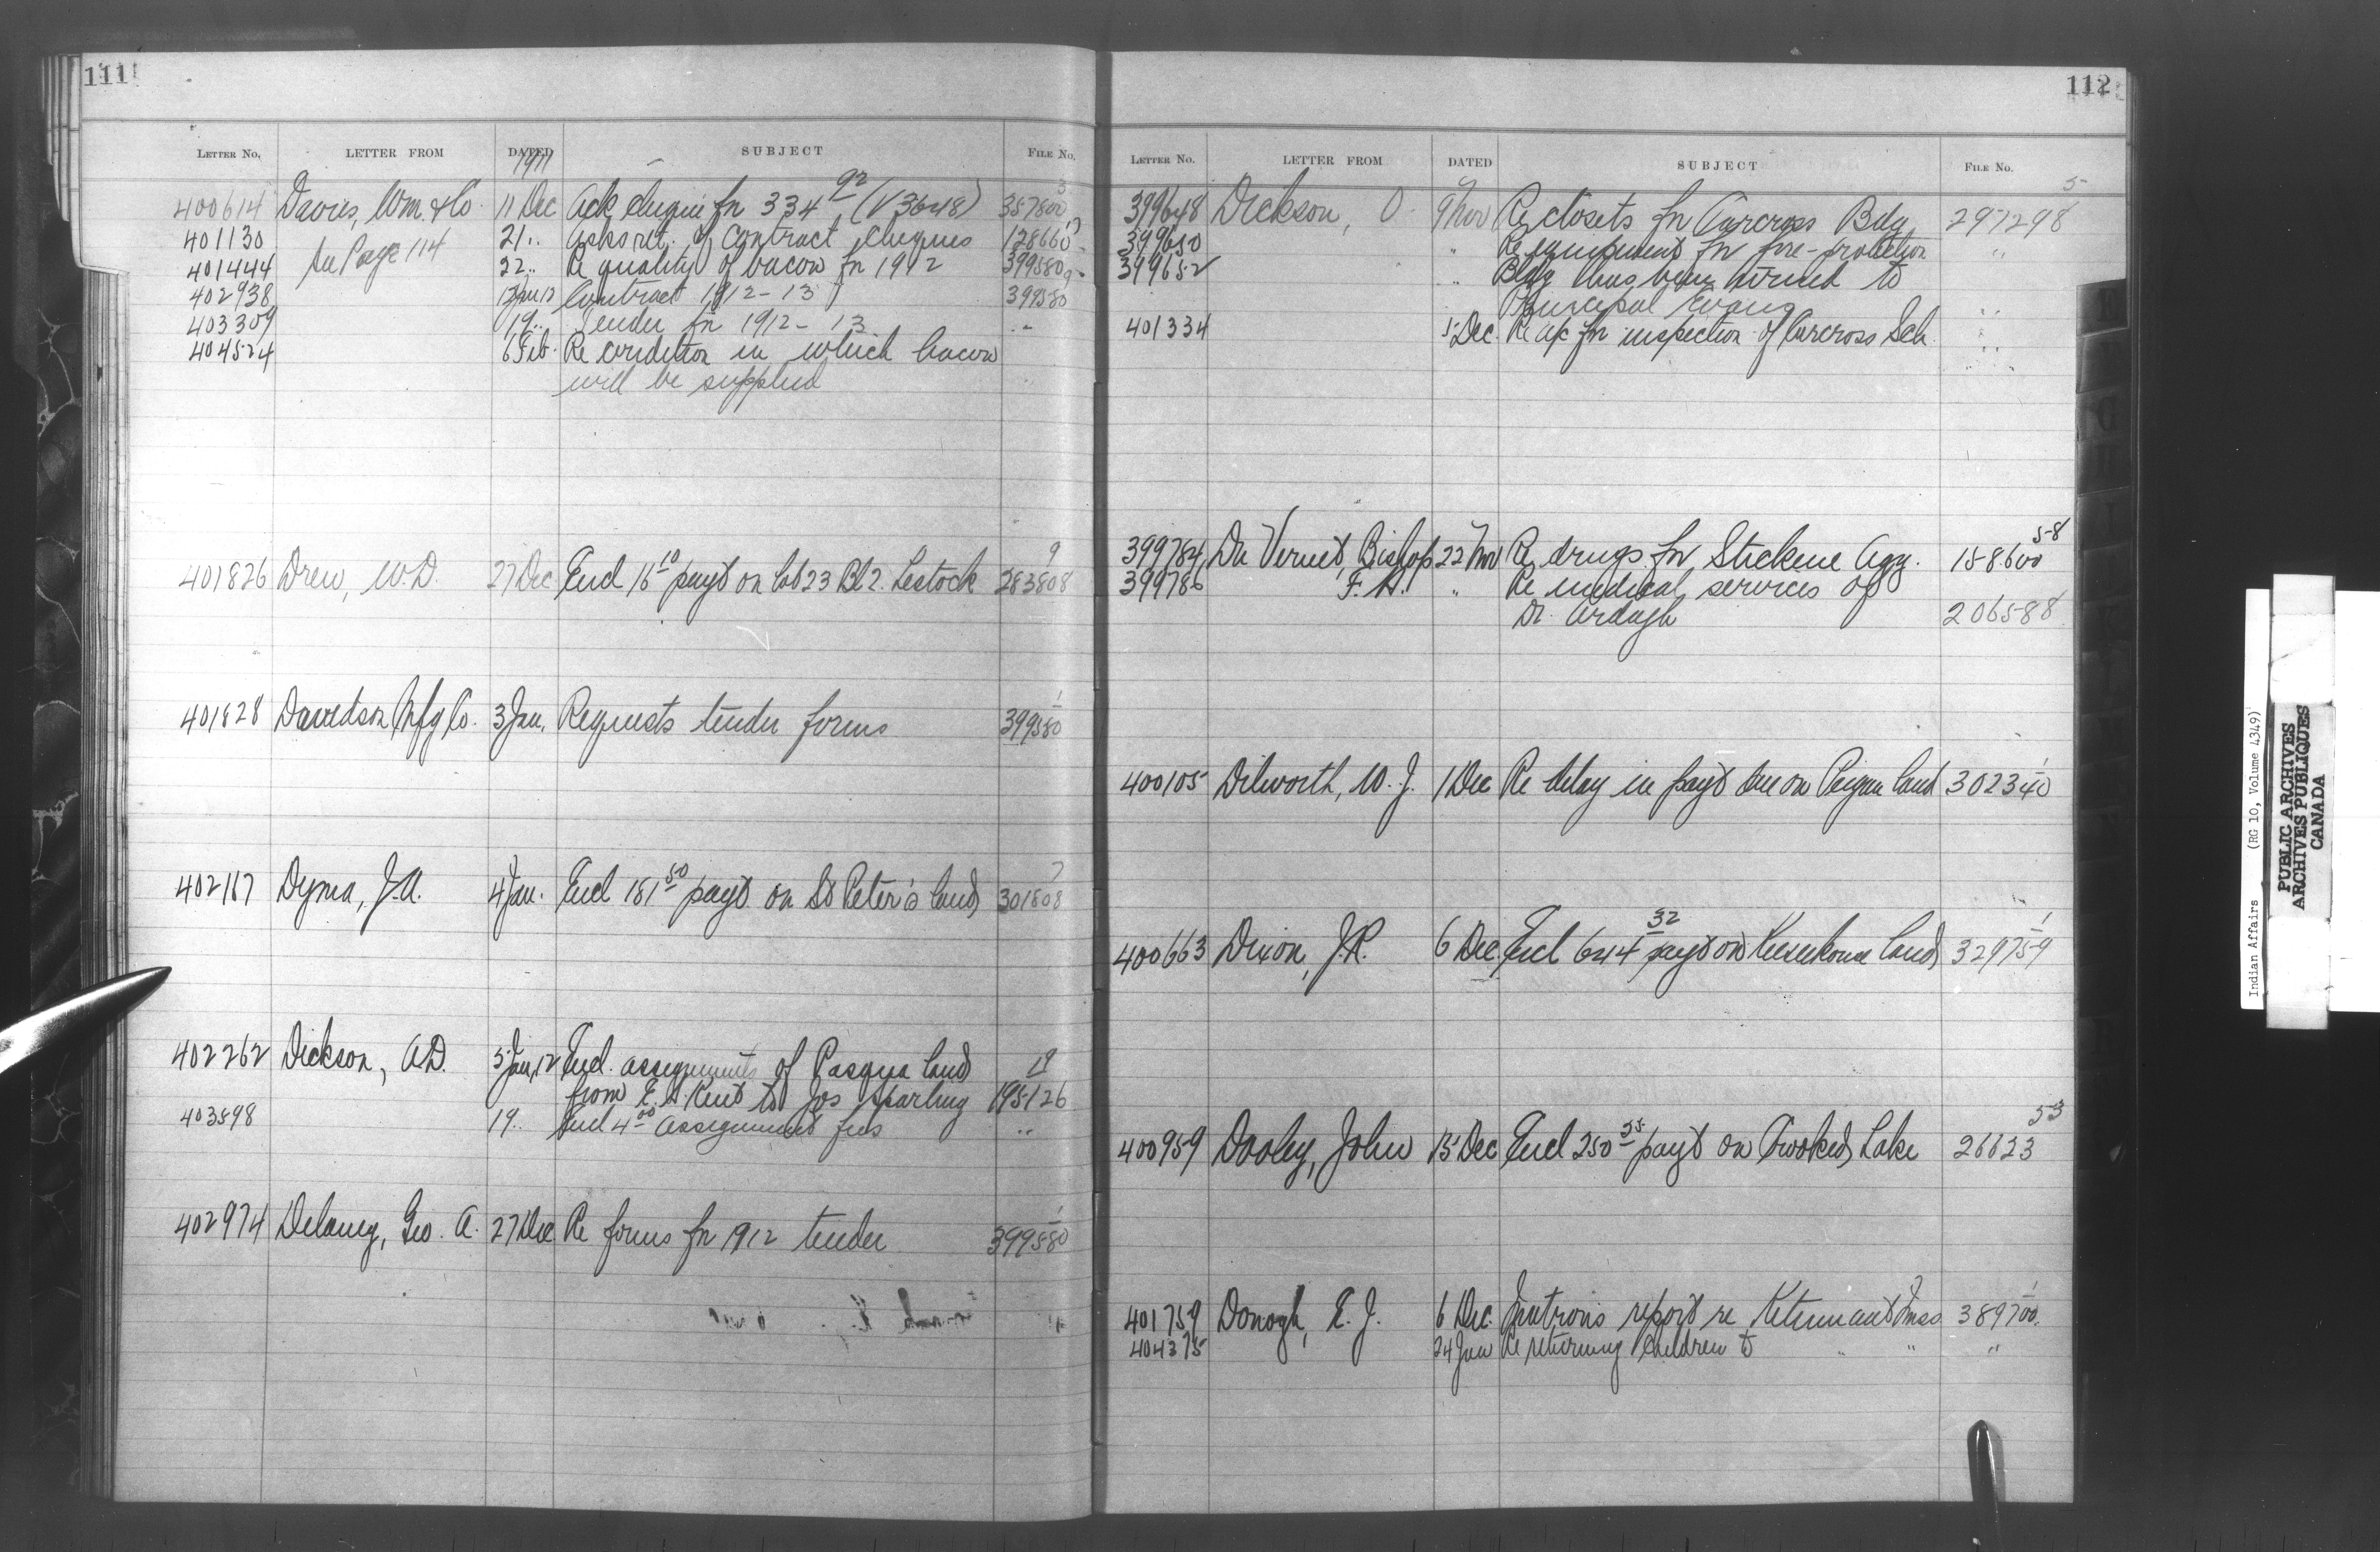 111
LETTER No. LETTER FROM DATED SUBJECT FILE No.
1911
400614 Davies, Wm. & Co. 11 Dec Ack cheque for 334 92 (V3648) 387800 3
401130 See Page 114 21 .. Asks ret. of contract cheques 128660
401444 22 .. Re quality of bacon for 1912 399580
402938 Contract 1912-13 399580
403309 19 .. Tender for 1912-13 "
404524 6 Feb. Re condition in which bacon
will be supplied
401826 Drew, W.D. 27 Dec Encl 16 10 payt on Lot 23 Bl 2. Lestock 283808 9
401828 Davidson Mfg Co. 3 Jan. Requests tender forms 399580 1
402167 Dyma, J.A. 4 Jan. Encl 181 50 payt on St Peter's land 301808 7
402262 Dickson, A.D. 5 Jan, 12 Encl. assignments of Pasqua land 19
from E. A. Kent to Jos Sparling 195126
403898 19 .. Encl 4 00 assignment fees ..
402974 Delaney, Geo. A. 27 Dec Re forms for 1912 tender 399580 1
112
LETTER No. LETTER FROM DATED SUBJECT FILE No.
399648 Dickson, O. 9 Nov Re closets for Carcross Bdg 297298 5
399650 " Re equipment for fire-protection "
399652 " Bldg has been turned to
Principal Evans "
401334 5 Dec. Re a/c for inspection of Carcross Sch. "
399784 Du Vernet, Bishop 22 Nov Re drugs for Stickene Agy. 158600 58
399786 F. H. " Re medical services of
Dr. Ardagh 206588
400105 Dilworth, W. J. 1 Dec Re delay in payt due on Peigan land 302340 1
400663 Dixon, J.R. 6 Dec. Encl 644 32 payt on Keesekouse land 329759 1
400959 Dooley, John 15 Dec Encl 250 25 payt on Crooked Lake 26623 53
401759 Donogh, E. J. 6 Dec. Matron's report re Kitamaat Inss 389700. 1
404375 24 Jan Re returning children to " " "
Indian Affairs (RG 10, Volume 4349)
PUBLIC ARCHIVES
ARCHIVES PUBLIQUES
CANADA